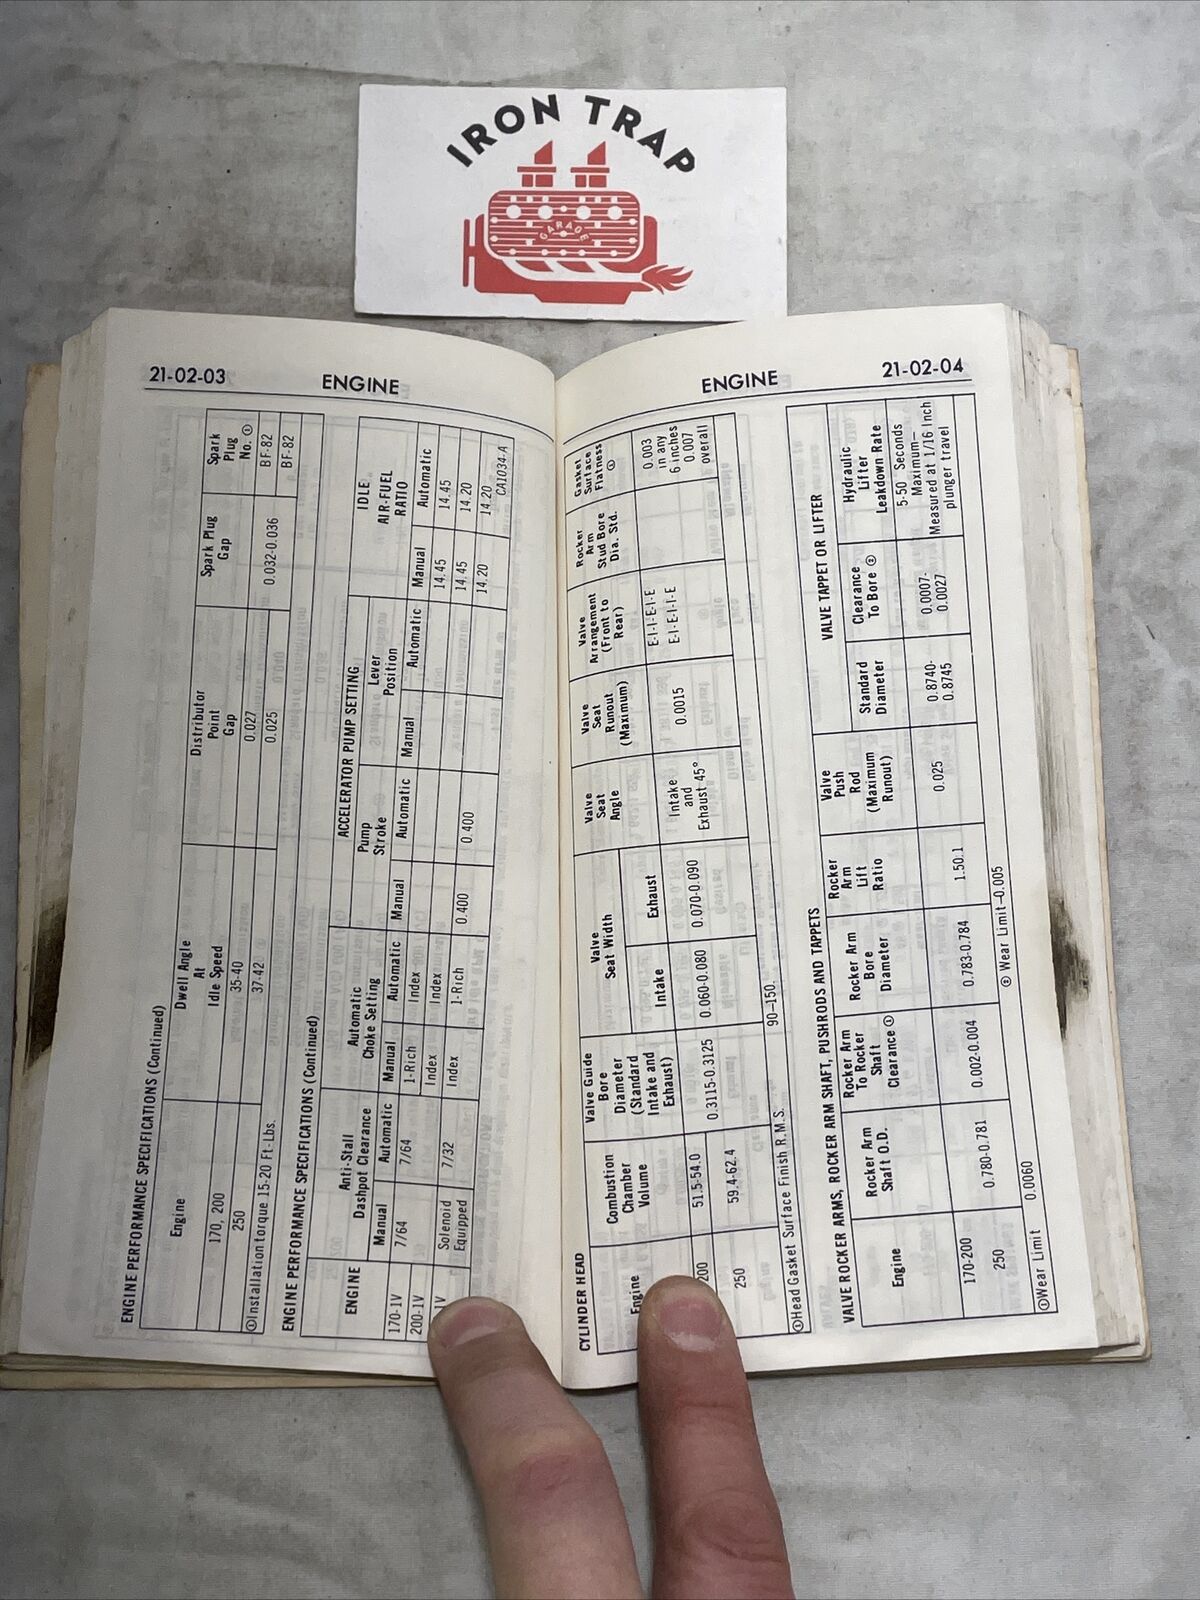 IRON TRAP
GARAGE
21-02-03
ENGINE
ENGINE PERFORMANCE SPECIFICATIONS (Continued)
Engine
Dwell Angle
At
Idle Speed
Distributor
Point
Gap
Spark Plug
Gap
Spark
Plug
No. ①
170, 200
35-40
0.027
0.032-0.036
BF-82
250
37-42
0.025
BF-82
①Installation torque 15-20 Ft-Lbs.
ENGINE PERFORMANCE SPECIFICATIONS (Continued)
ENGINE
Anti-Stall
Dashpot Clearance
Automatic
Choke Setting
ACCELERATOR PUMP SETTING
Pump
Stroke
Lever
Position
IDLE
AIR-FUEL
RATIO
Manual Automatic Manual Automatic Manual Automatic Manual Automatic Manual Automatic
170-1V 7/64 7/64 1-Rich Index 14.45 14.45
200-1V Index Index 14.45 14.20
1V Solenoid
Equipped
7/32 Index 1-Rich 0.400 0.400 14.20 14.20
CA1034-A
ENGINE
21-02-04
CYLINDER HEAD
Engine
Combustion
Chamber
Volume
Valve Guide
Bore
Diameter
(Standard
Intake and
Exhaust)
Valve
Seat Width
Intake
Exhaust
Valve
Seat
Angle
Valve
Seat
Runout
(Maximum)
Valve
Arrangement
(Front to
Rear)
Rocker
Arm
Stud Bore
Dia. Std.
Gasket
Surface
Flatness
①
200 51.5-54.0
0.3115-0.3125
0.060-0.080
0.070-0.090
Intake
and
Exhaust 45°
0.0015
E-I-I-E-I-E
E-I-E-I-I-E
0.003
in any
6 inches
0.007
overall
250 59.4-62.4
①Head Gasket Surface Finish R.M.S. 90–150.
VALVE ROCKER ARMS, ROCKER ARM SHAFT, PUSHRODS AND TAPPETS
Engine
Rocker Arm
Shaft O.D.
Rocker Arm
To Rocker
Shaft
Clearance ①
Rocker Arm
Bore
Diameter
Rocker
Arm
Lift
Ratio
Valve
Push
Rod
(Maximum
Runout)
VALVE TAPPET OR LIFTER
Standard
Diameter
Clearance
To Bore ②
Hydraulic
Lifter
Leakdown Rate
170-200
250
0.780-0.781
0.002-0.004
0.783-0.784
1.50:1
0.025
0.8740-
0.8745
0.0007-
0.0027
5-50 Seconds
Maximum—
Measured at 1/16 Inch
plunger travel
①Wear Limit 0.0060
② Wear Limit-0.005